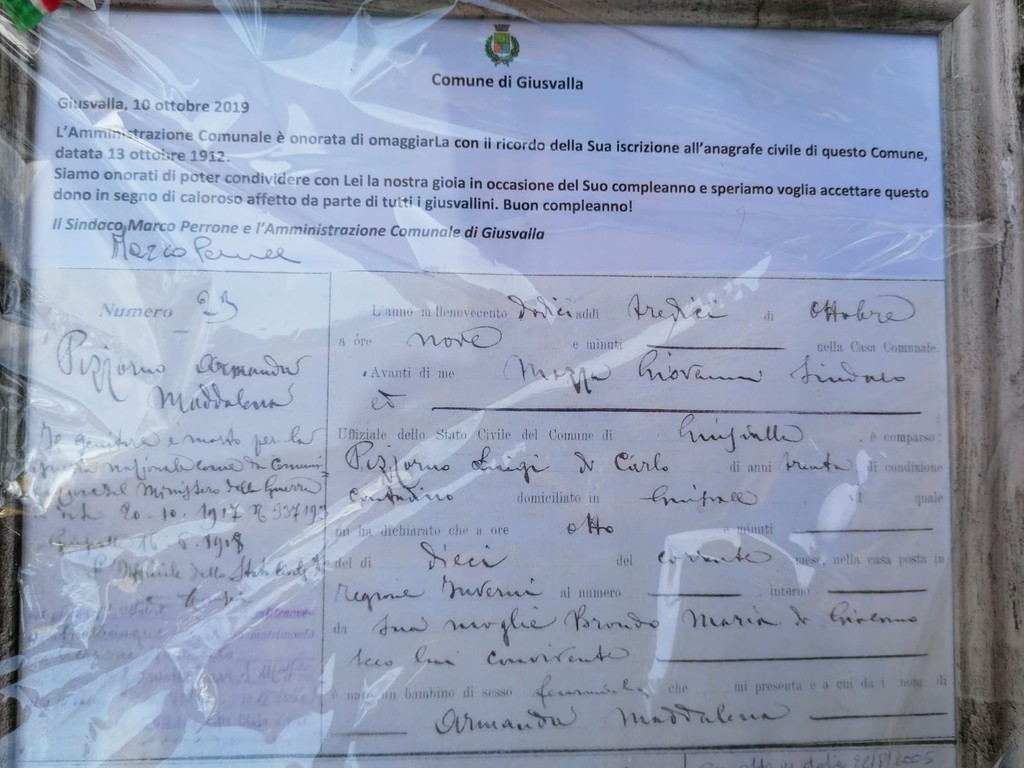 Comune di Giusvalla
Giusvalla, 10 ottobre 2019
L'Amministrazione Comunale è onorata di omaggiarLa con il ricordo della Sua iscrizione all'anagrafe civile di questo Comune,
datata 13 ottobre 1912.
Siamo onorati di poter condividere con Lei la nostra gioia in occasione del Suo compleanno e speriamo voglia accettare questo
dono in segno di caloroso affetto da parte di tutti i giusvallini. Buon compleanno!
Il Sindaco Marco Perrone e l'Amministrazione Comunale di Giusvalla
Numero 23
Pizzorno Armanda
Maddalena
genitore è morto per la
nazionale come da
del Ministero della Guerra
20-10-1917 N
1918
L'Ufficiale dello Stato Civile
L'anno millenovecento dodici addì tredici di Ottobre
a ore nove e minuti nella Casa Comunale
Avanti di me Giovanni Sindaco
et
Uffiziale dello Stato Civile del Comune di Giusvalla è comparso:
Pizzorno Luigi di Carlo di anni trenta di condizione
contadino domiciliato in Giusvalla il quale
mi ha dichiarato che a ore otto e minuti
del dì dieci del corrente mese, nella casa posta in
Regione al numero interno
da sua moglie Brondo Maria di Giacomo
seco lui convivente
è nato un bambino di sesso femminile che mi presenta e a cui dà i nomi di
Armanda Maddalena